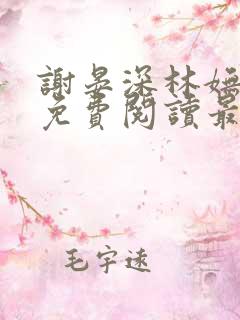 謝晏深林嫵
免費閱讀最
毛宇遠